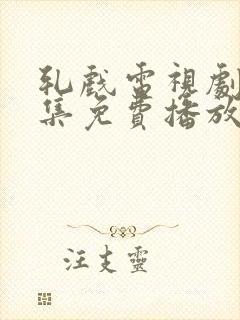 乳戲電視劇
集免費播放
汪支靈